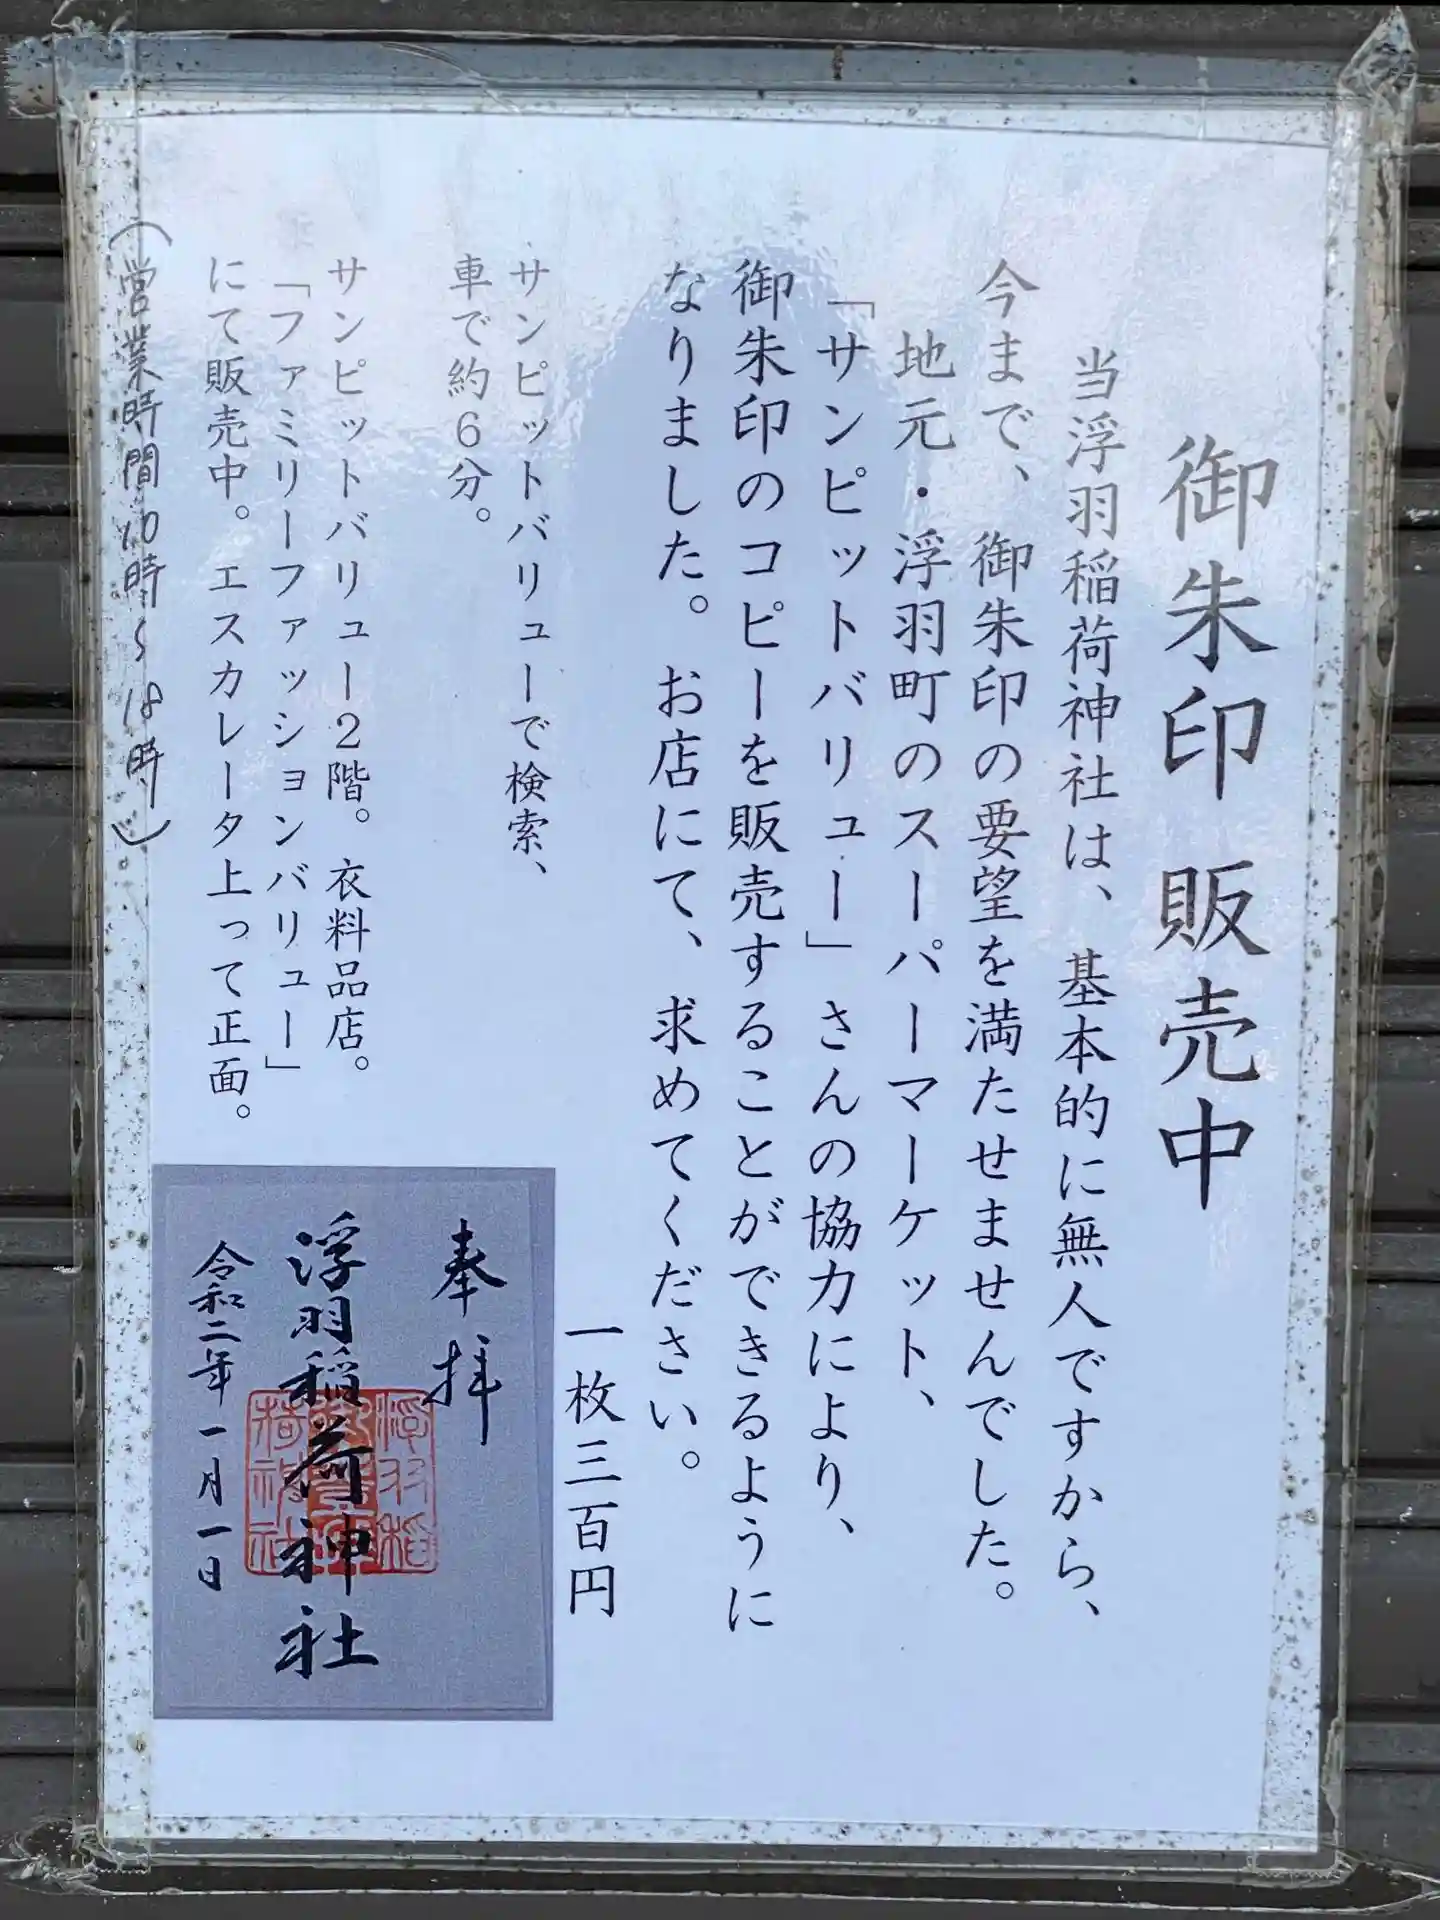 御朱印 販売中
当浮羽稲荷神社は、基本的に無人ですから、
今まで、御朱印の要望を満たせませんでした。
地元・浮羽町のスーパーマーケット、
「サンピットバリュー」さんの協力により、
御朱印のコピーを販売することができるように
なりました。お店にて、求めてください。
一枚三百円
サンピットバリューで検索、
車で約6分。
サンピットバリュー2階。衣料品店。
「ファミリーファッションバリュー」
にて販売中。エスカレータ上って正面。
(営業時間10時〜18時)
奉拝
浮羽稲荷神社
令和二年一月一日